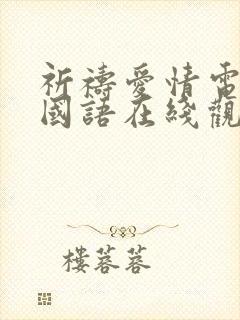 祈禱愛情電
國語在綫觀
樓蓉蓉